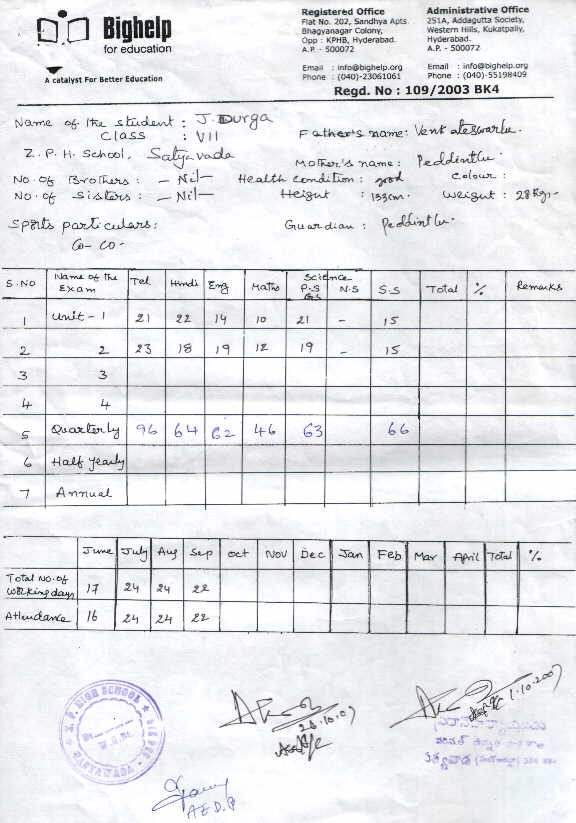 Bighelp
for education
A catalyst For Better Education
Registered Office
Flat No. 202, Sandhya Apts.
Bhagyanagar Colony,
Opp : KPHB, Hyderabad.
A.P. - 500072
Email : info@bighelp.org
Phone : (040)-23061061
Administrative Office
251A, Addagutta Society,
Western Hills, Kukatpally,
Hyderabad.
A.P. - 500072
Email : info@bighelp.org
Phone : (040)-55198409
Regd. No : 109/2003 BK4
Name of the student : J. Durga
Class : VII
Father's name: Venkateswarlu.
Z. P. H. School, Satyavada
Mother's name : Peddintlu.
No. of Brothers : - Nil - Health condition : good Colour :
No. of Sisters : - Nil - Height : 133cm. Weight : 28kgs-
Sports particulars: Guardian : Peddintlu.
Co- co-
S.No Name of the Exam Tel Hindi Eng Maths Science P.S G.S N.S S.S Total % Remarks
1 Unit - 1 21 22 14 10 21 - 15
2 2 23 18 19 12 19 - 15
3 3
4 4
5 Quarterly 96 64 62 46 63 66
6 Half yearly
7 Annual
June July Aug Sep Oct Nov Dec Jan Feb Mar April Total %
Total No. of working days 17 24 24 22
Attendance 16 24 24 22
Z. P. HIGH SCHOOL
26.10.07
1.10.2007
A.E.D.P